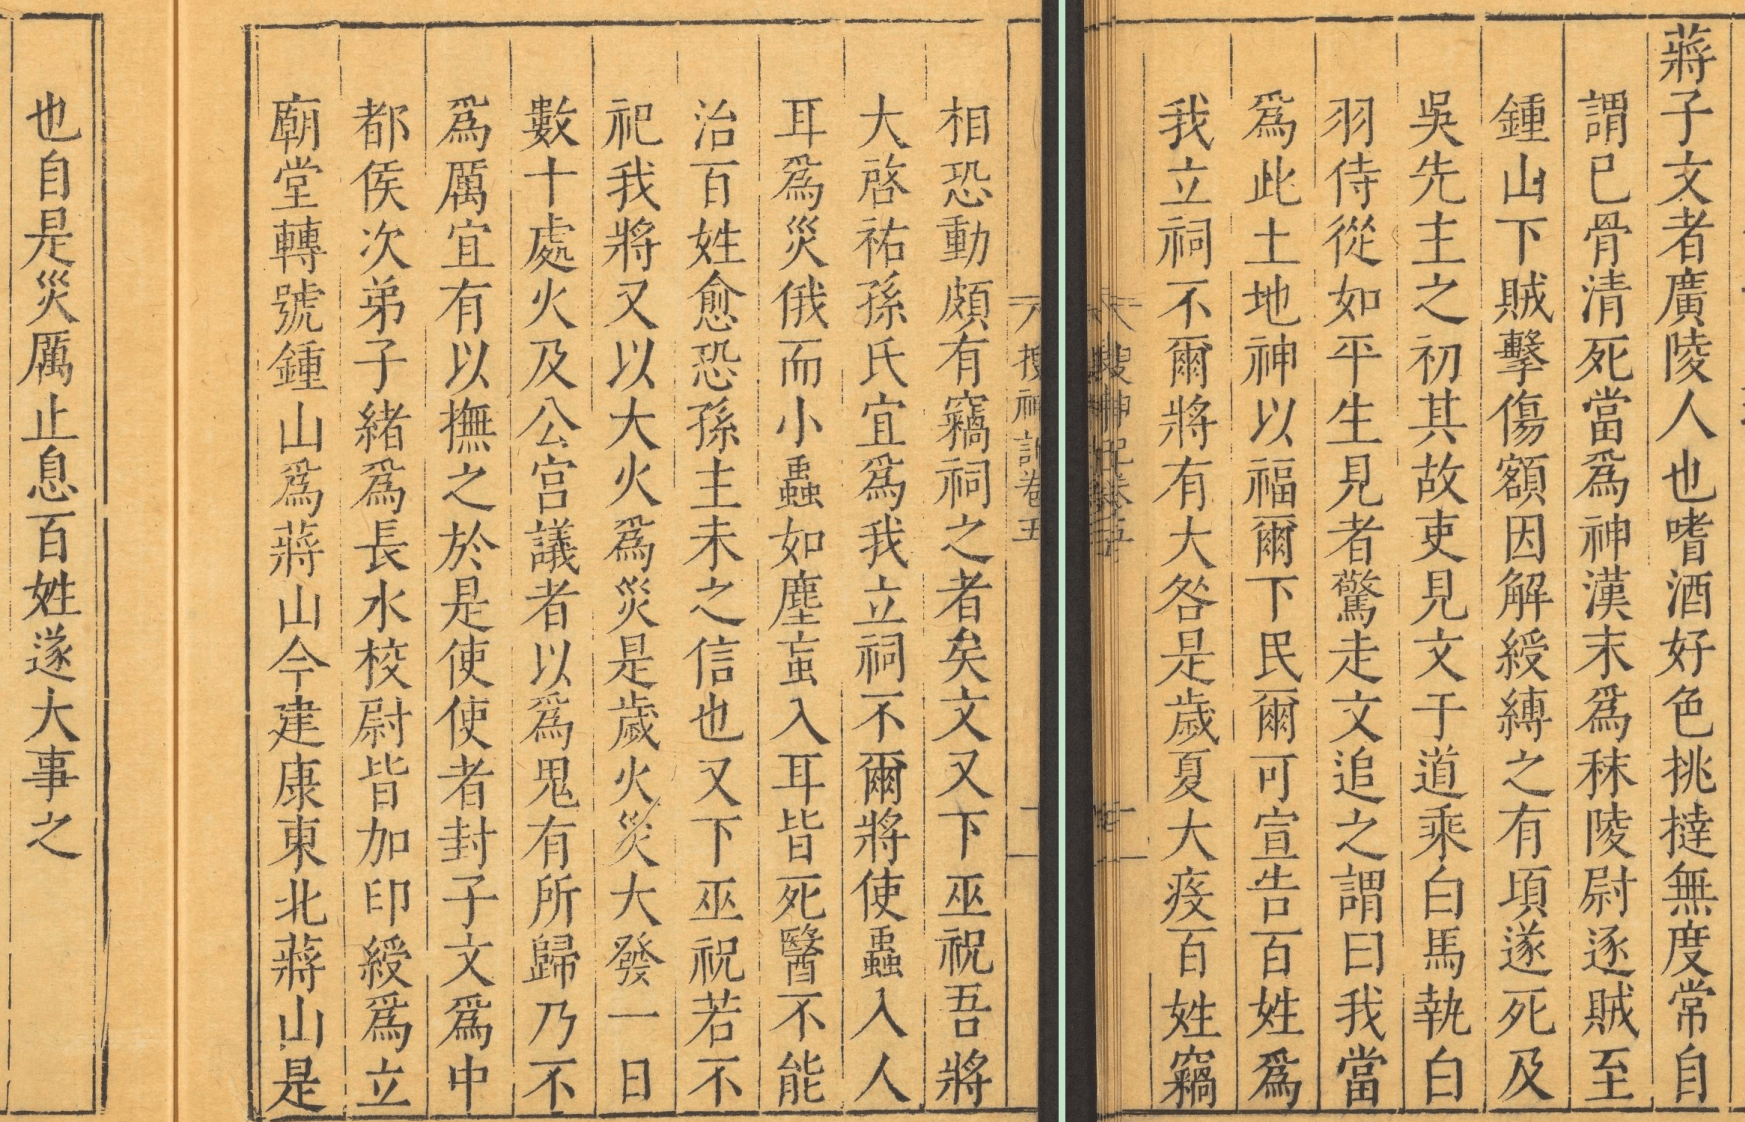 蔣子文者廣陵人也嗜酒好色挑撻無度常自
謂己骨清死當爲神漢末爲秣陵尉逐賊至
鍾山下賊擊傷額因解綬縛之有頃遂死及
吳先主之初其故吏見文于道乘白馬執白
羽侍從如平生見者驚走文追之謂曰我當
爲此土地神以福爾下民爾可宣告百姓爲
我立祠不爾將有大咎是歲夏大疫百姓竊
搜神記卷五
相恐動頗有竊祠之者矣文又下巫祝吾將
大啓祐孫氏宜爲我立祠不爾將使蟲入人
耳爲災俄而小蟲如塵䖟入耳皆死醫不能
治百姓愈恐孫主未之信也又下巫祝若不
祀我將又以大火爲災是歲火災大發一日
數十處火及公宮議者以爲鬼有所歸乃不
爲厲宜有以撫之於是使使者封子文爲中
都侯次弟子緒爲長水校尉皆加印綬爲立
廟堂轉號鍾山爲蔣山今建康東北蔣山是
也自是災厲止息百姓遂大事之